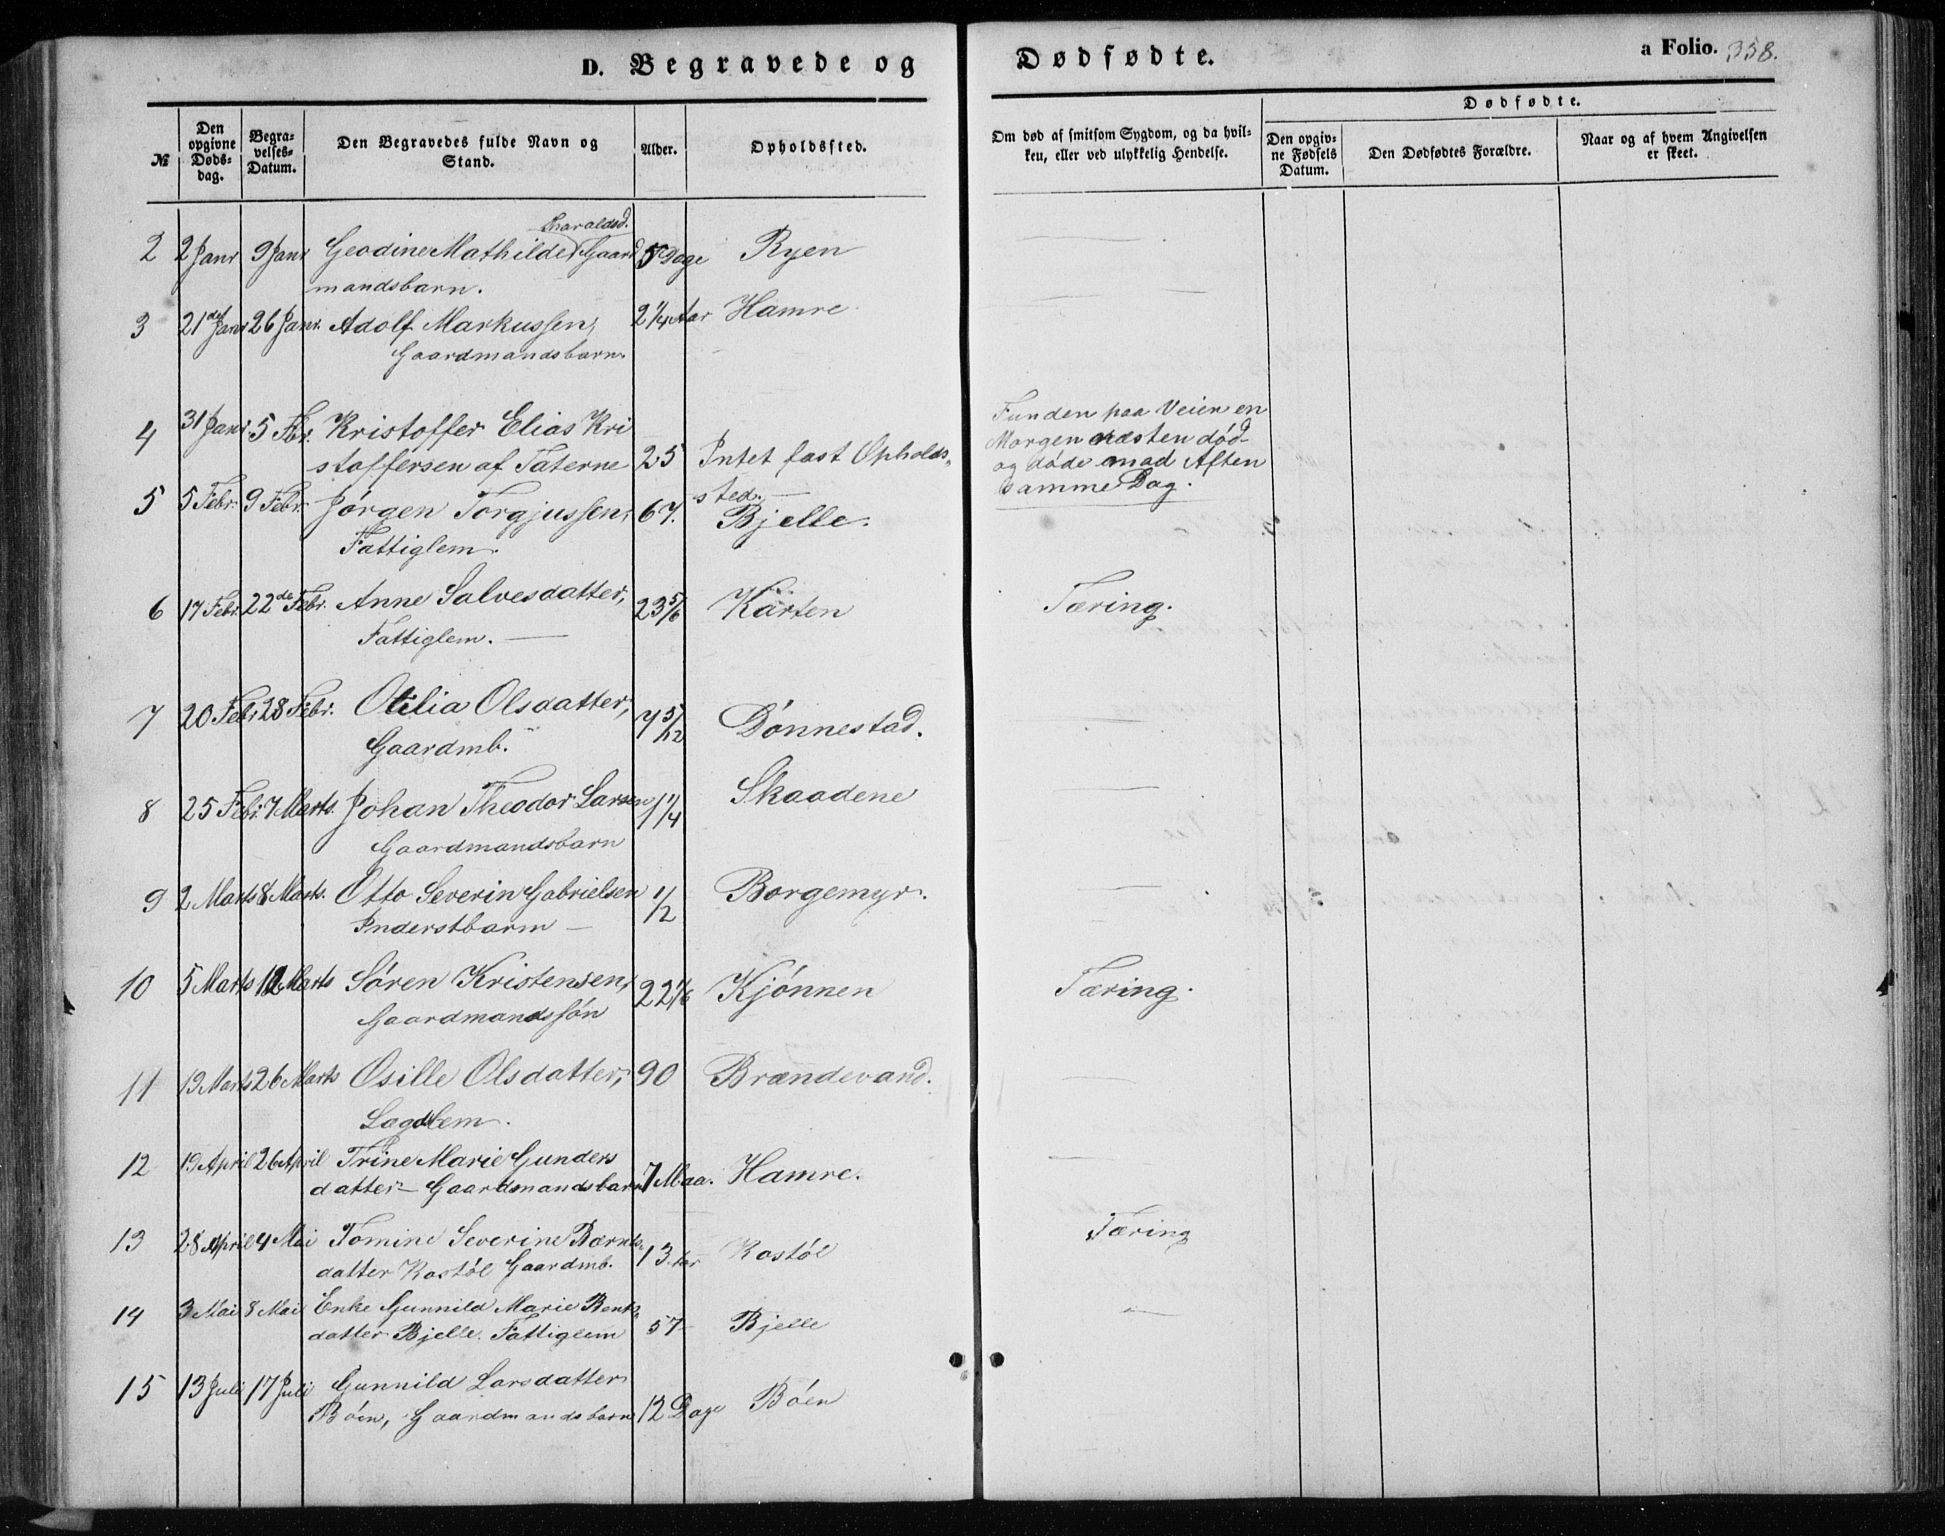 D. Begravede og Dødfødte. a Folio. 358.
№ Den opgivne Døds-dag. Begra-velses-Datum. Den Begravedes fulde Navn og Stand. Alder. Opholdssted. Om død af smitsom Sygdom, og da hvil-ken, eller ved ulykkelig Hendelse. Dødfødte. Den opgiv-ne Fødsels Datum. Den Dødfødtes Forældre. Naar og af hvem Angivelsen er skeet.
Charaldsd.
2 2 Janr 9 Janr Geodine Mathilde Gaard 5 Dage Ryen
mandsbarn.
3 21de Janr 26 Janr. Adolf Markussen, 2 1/4 Aar Hamre
Gaardmandsbarn.
4 31 Janr 5 Febr. Kristoffer Elias Kri Funden paa Veien en
stoffersen af Taterne 25 Intet fast Opholds- Morgen næsten død
sted. og døde mod Aften
samme Dag.
5 5 Febr. 9 Febr. Jørgen Torgjussen, 67. Bjelle.
Fattiglem.
6 17 Febr. 22de Febr. Anne Salvesdatter, 23 5/6 Karten Tæring.
Fattiglem.
7 20 Febr 28 Febr. Otilia Olsdatter, 7 5/12 Dønnestad.
Gaardmb.
8 25 Febr. 7 Marts. Johan Theodor Larsen 1 1/4 Skaadene
Gaardmandsbarn
9 2 Marts 8 Marts. Otto Severin Gabrielsen 1/2 Borgemyr.
Inderstbarn
10 5 Marts 12 Marts Søren Kristensen, 22 1/6 Kjønnen Tæring.
Gaardmandssøn
11 19 Marts 26 Marts Osille Olsdatter, 90 Brændevand.
Lægdlem.
12 19 April 26 April Trine Marie Gunders
datter Gaardmandsbarn 7 Maa. Hamre.
13 28 April 4 Mai Tomine Severine Bærnts- Tæring
datter Rostøl Gaardmb. 13 Aar Rostøl
14 3 Mai 8 Mai Enke Gunnild Marie Bents-
datter Bjelle. Fattiglem 57 Bjelle
15 13 Juli 17 Juli Gunnild Larsdatter
Bøen, Gaardmandsbarn 12 Dage Bøen